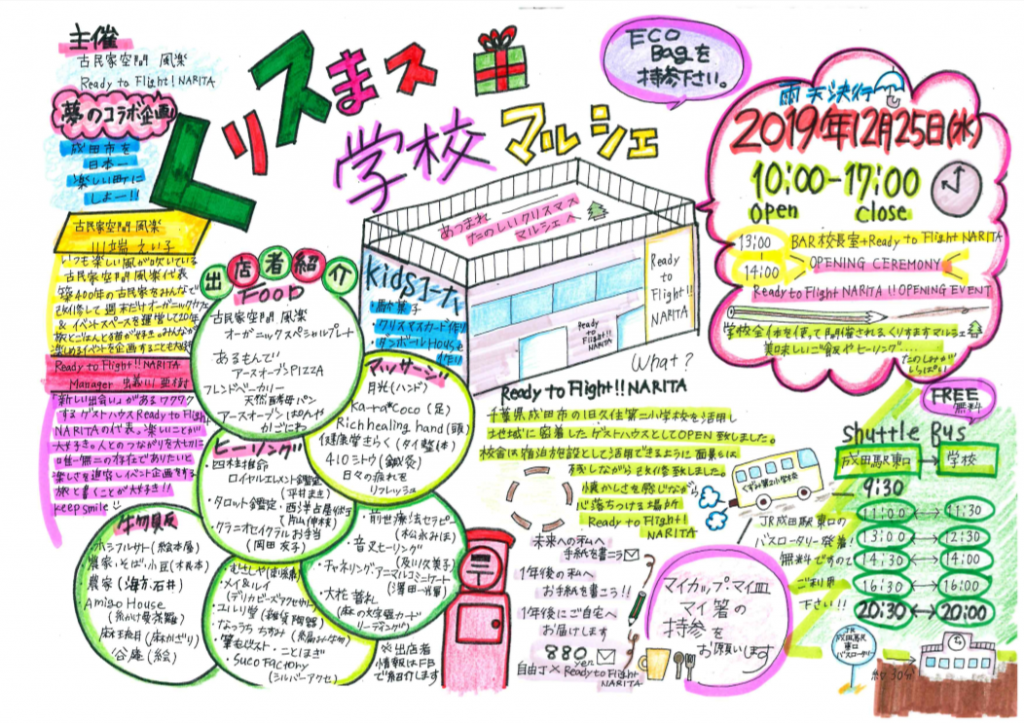 主催
古民家空間 風楽
Ready to Flight! NARITA
夢のコラボ企画
成田市を
日本一
楽しい町に
しよー!!
古民家空間 風楽
いつも楽しい風が吹いている
古民家空間風楽代表
築400年の古民家をみんなで
改修して週末だけオーガニックカフェ
& イベントスペースを運営して10年
Ready to Flight!! NARITA
Manager
「新しい出会い」があるワクワク
するゲストハウスReady to Flight
NARITAの代表。楽しいことが
大好き。人とのつながりを大切に
唯一無二の存在でありたいと
旅と書くことが大好き!!
keep smile
くリスまス
学校マルシェ
ECO
Bagを
持参下さい。
雨天決行
2019年12月25日(水)
10:00-17:00
open close
13:00 BAR校長室+Ready to Flight NARITA
14:00 OPENING CEREMONY
Ready to Flight NARITA!! OPENING EVENT
学校全体を使って開催されるくりすますマルシェ
美味しいご飯やヒーリング....
あつまれ
たのしいクリスマス
マルシェへ
Kidsコーナー
・駄菓子
・クリスマスカード作り
・ダンボールHouse
作り
Ready
to
Flight!!
NARITA
Ready
to
Flight!!
NARITA
出店者紹介
FOOD
古民家空間 風楽
オーガニックスペシャルプレート
あるもんで!
アースオーブンPIZZA
フレンドベーカリー
天然酵母パン
アースオーブン ぱんや
かごにわ
マッサージ
月光(ハンド)
Ka+a*Coco(足)
Rich healing hand(頭)
健康堂きらく(タイ整体)
410シトウ(鍼灸)
日々の疲れを
リフレッシュ
ヒーリング
・四柱推命
ロイヤルエレメント鑑定
(平井まき)
・タロット鑑定・西洋占星術
・クラニオセイクラルお手当
(岡田 友子)
・前世療法セラピー
(松倉みほ)
・音叉ヒーリング
(及川久美子)
・チャネリング・アニマルコミニケート
・大花暮札
(麻の大宇宙カード
リーディング)
生物販
ホシフルサト(絵本屋)
農家・そば、小豆(木長本)
農家(海方、石井)
Amigo House
麻王朱目(麻かざり)
谷庵(絵)
・メイ&ルイ
(デリカビーズアクセサリー)
・ユルリ堂(雑貨陶器)
・筆もじスト・ことほぎ
・SUCO FACTORY
(シルバーアクセ)
※出店者
情報はFB
で紹介します
What?
Ready to Flight!! NARITA
千葉県成田市の旧久住第二小学校を活用し
土地域に密着したゲストハウスとしてOPEN致しました。
校舎は宿泊施設として活用できるように面影も
残しながら改修致しました。
懐かしさを感じながら
心落ちつける場所
Ready to Flight!
NARITA
くずみ第二小学校
未来への私へ
手紙を書こう
1年後の私へ
お手紙を書こう!!
1年後にご自宅へ
お届けします
880 yen
自由丁×Ready to Flight
NARITA
マイカップ・マイ皿
マイ箸の
持参を
お願いします
FREE
無料
Shuttle Bus
成田駅東口
学校
9:30
11:00 ↔ 11:30
13:00 ↔ 12:30
14:30 ↔ 14:00
16:30 ↔ 16:00
20:30 ↔ 20:00
JR成田駅東口の
バスロータリー発着!
無料ですので
ご利用
下さい!!
JR
成田駅
東口
バスロータリー
約30分